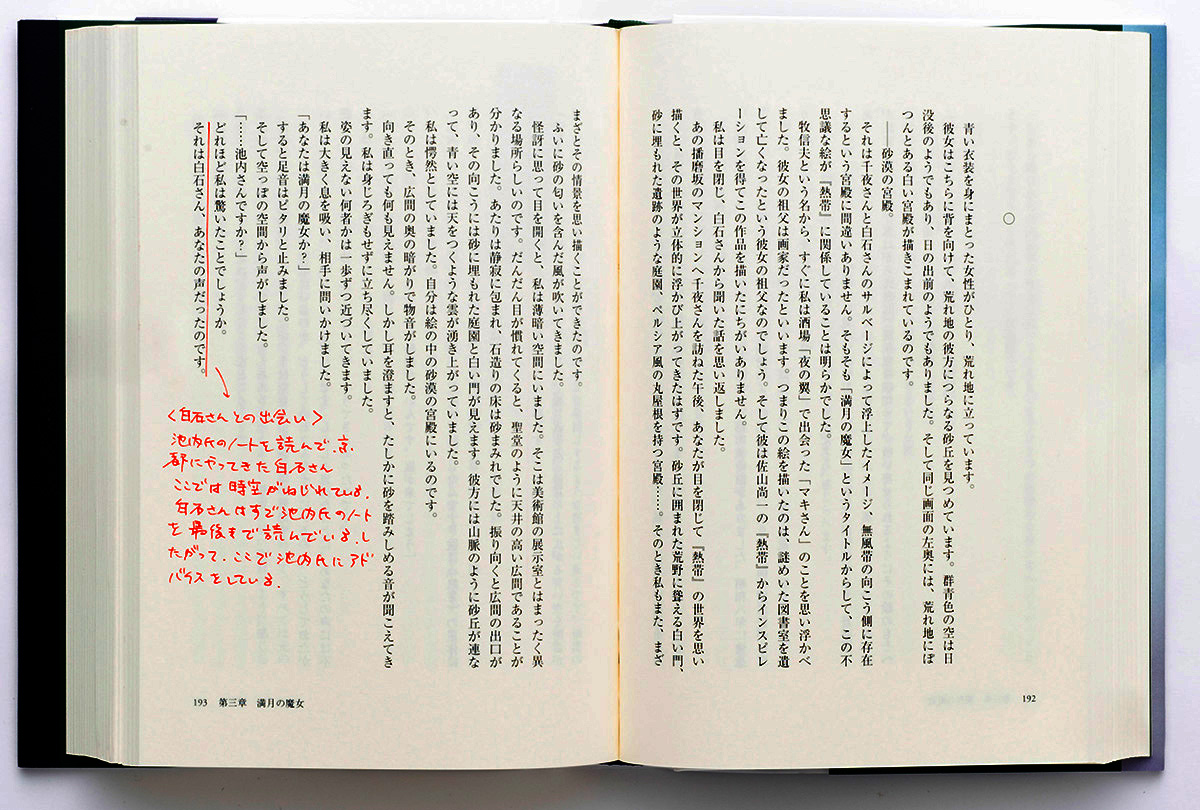 ○
青い衣装を身にまとった女性がひとり、荒れ地に立っています。
彼女はこちらに背を向けて、荒れ地の彼方につらなる砂丘を見つめています。群青色の空は日
没後のようでもあり、日の出前のようでもありました。そして同じ画面の左奥には、荒れ地にぽ
つんとある白い宮殿が描きこまれているのです。
――砂漠の宮殿。
それは千夜さんと白石さんのサルベージによって浮上したイメージ、無風帯の向こう側に存在
するという宮殿に間違いありません。そもそも「満月の魔女」というタイトルからして、この不
思議な絵が『熱帯』に関係していることは明らかでした。
牧信夫という名から、すぐに私は酒場「夜の翼」で出会った「マキさん」のことを思い浮かべ
ました。彼女の祖父は画家だったといいます。つまりこの絵を描いたのは、謎めいた図書室を遺
して亡くなったという彼女の祖父なのでしょう。そして彼は佐山尚一の『熱帯』からインスピレ
ーションを得てこの作品を描いたにちがいありません。
私は目を閉じ、白石さんから聞いた話を思い返しました。
あの播磨坂のマンションへ千夜さんを訪ねた午後、あなたが目を閉じて『熱帯』の世界を思い
描くと、その世界が立体的に浮かび上がってきたはずです。砂丘に囲まれた荒野に聳える白い門、
砂に埋もれた遺跡のような庭園、ペルシア風の丸屋根を持つ宮殿……。そのとき私もまた、まざ
192
まざとその情景を思い描くことができたのです。
ふいに砂の匂いを含んだ風が吹いてきました。
怪訝に思って目を開くと、私は薄暗い空間にいました。そこは美術館の展示室とはまったく異
なる場所らしいのです。だんだん目が慣れてくると、聖堂のように天井の高い広間であることが
分かりました。あたりは静寂に包まれ、石造りの床は砂まみれでした。振り向くと広間の出口が
あり、その向こうには砂に埋もれた庭園と白い門が見えます。彼方には山脈のように砂丘が連な
って、青い空には天をつくような雲が湧き上がっていました。
私は愕然としていました。自分は絵の中の砂漠の宮殿にいるのです。
そのとき、広間の奥の暗がりで物音がしました。
向き直っても何も見えません。しかし耳を澄ますと、たしかに砂を踏みしめる音が聞こえてき
ます。私は身じろぎもせずに立ち尽くしていました。
姿の見えない何者かは一歩ずつ近づいてきます。
私は大きく息を吸い、相手に問いかけました。
「あなたは満月の魔女か？」
すると足音はピタリと止みました。
そして空っぽの空間から声がしました。
「……池内さんですか？」
どれほど私は驚いたことでしょうか。
それは白石さん、あなたの声だったのです。
193 第三章 満月の魔女
〈白石さんとの出会い〉
池内氏のノートを読んで、京
都にやってきた白石さん
ここでは時空がねじれている。
白石さんはすで池内氏のノート
を最後まで読んでいる。し
たがって、ここで池内氏にアド
バイスをしている。